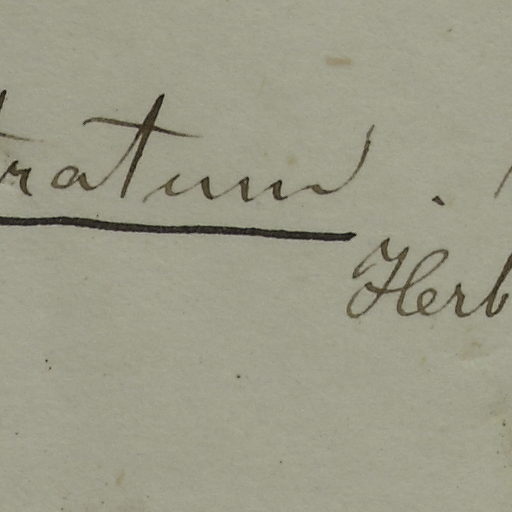 tratum.
Herb